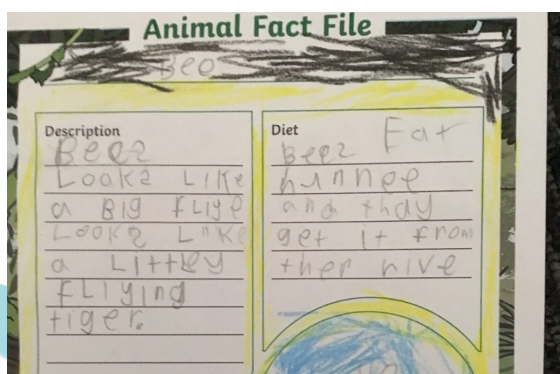 Animal Fact File
Beo
Description
Beez
Lookz Like
a BIG fliye
Lookz Like
a Littley
fLiying
tiger.
Diet
Beez Eat
hunnee
and thay
get it from
ther hive